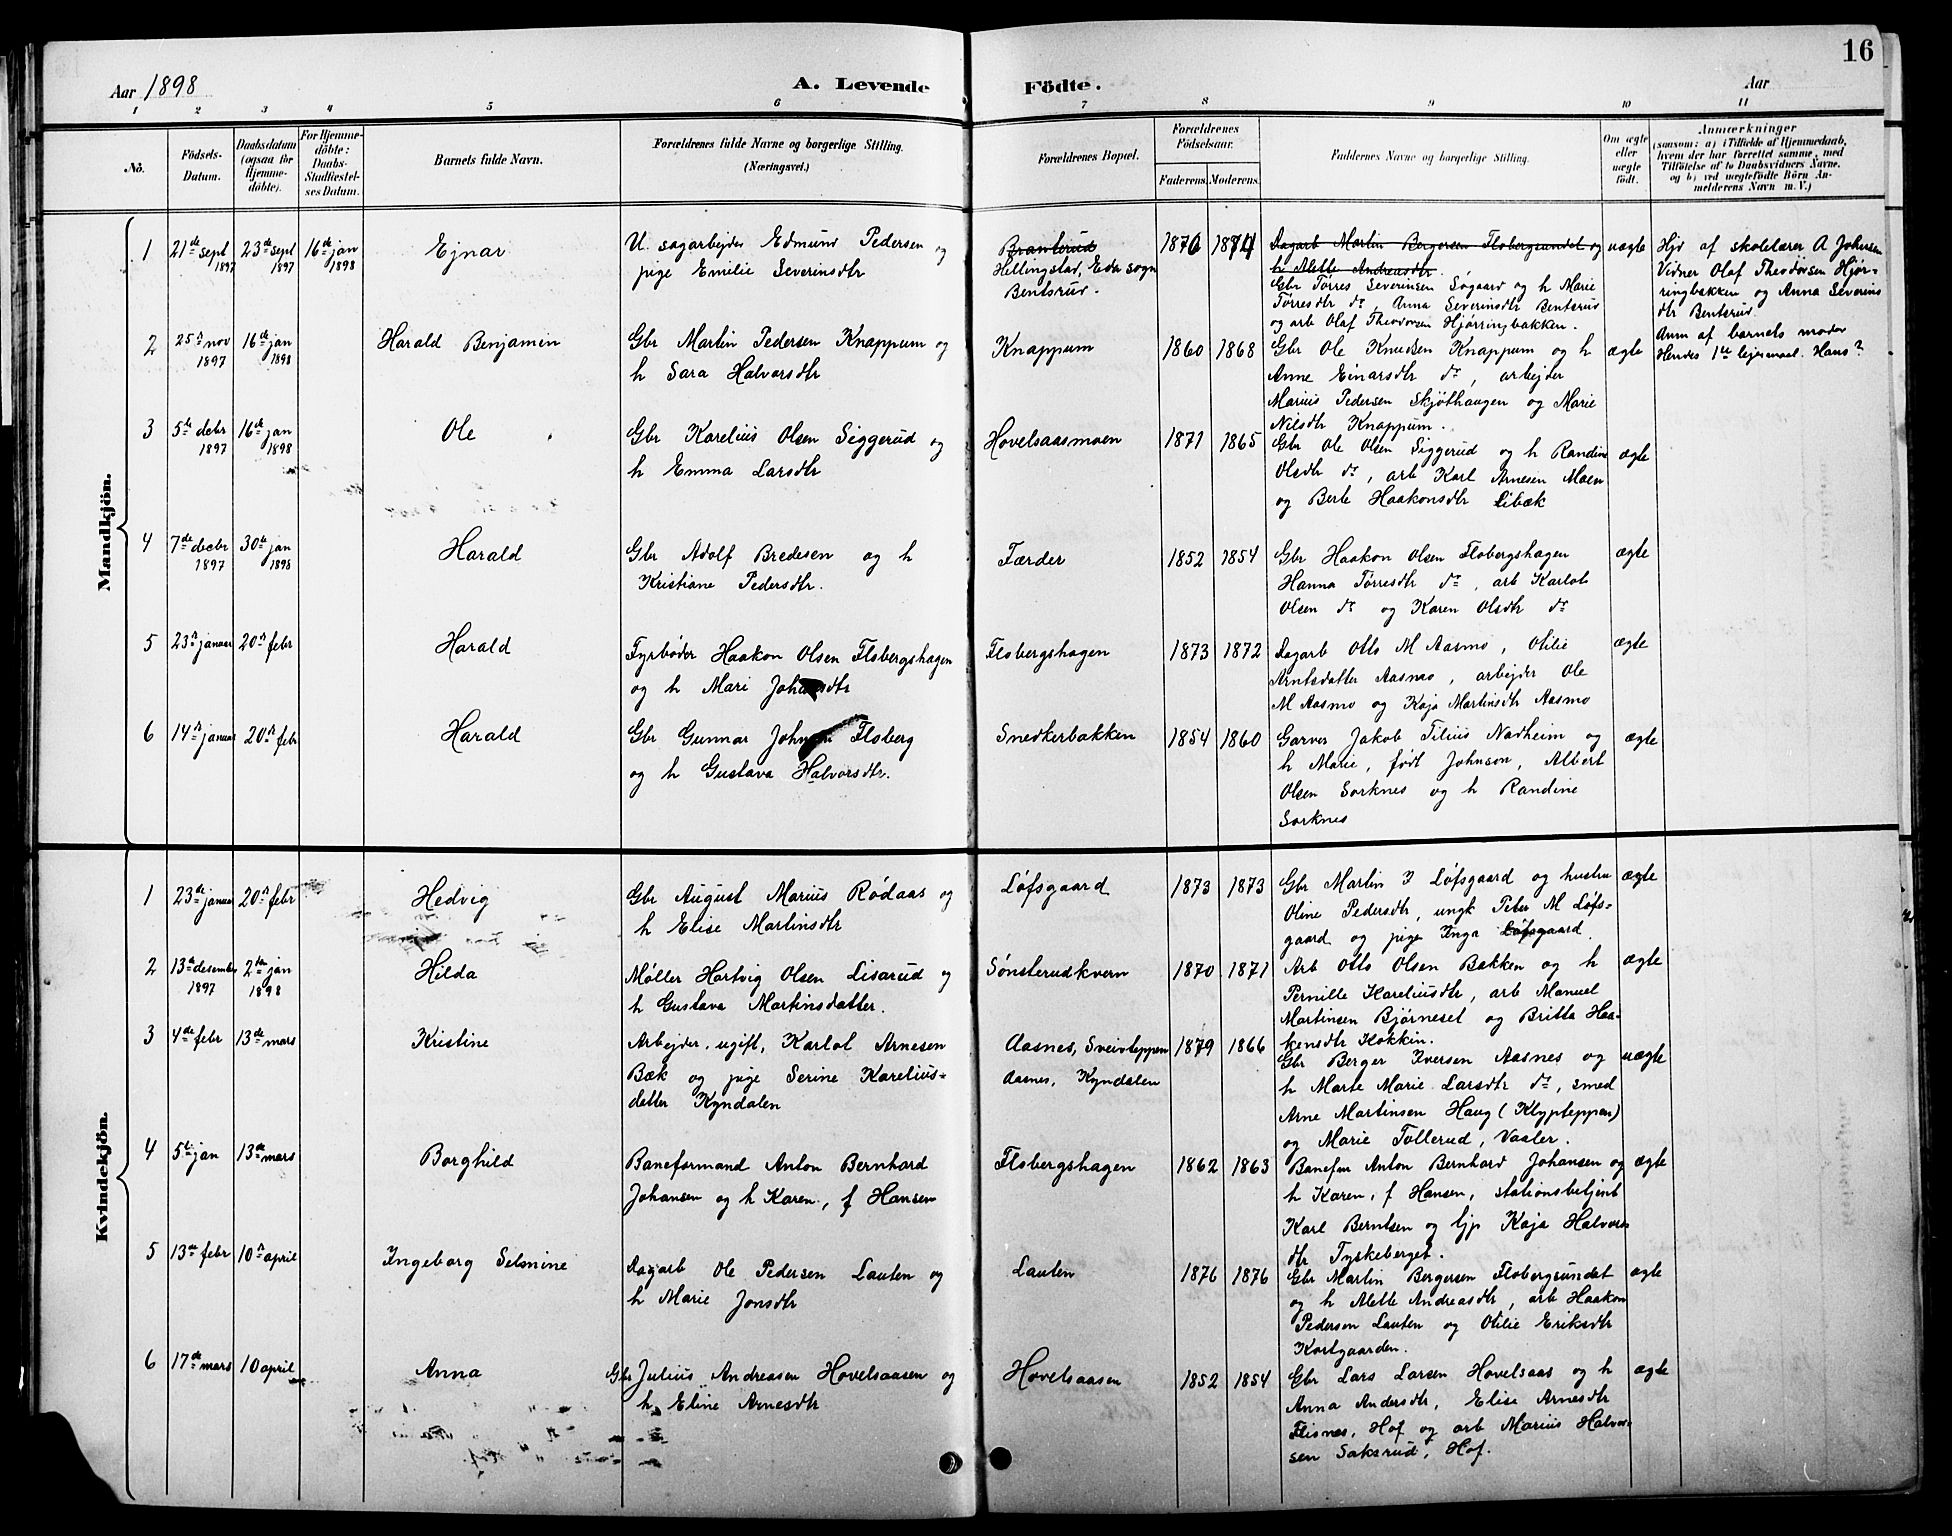 16
Aar 1898
A. Levende
Födte.
Aar
1 2 3 4 5 6 7 8 9 10 11
No.
Födsels-
Datum.
Daabsdatum
(ogsaa för
Hjemme-
döbte).
For Hjemme-
döbte:
Daabs-
Stadfæstel-
ses Datum.
Barnets fulde Navn.
Forældrenes fulde Navne og borgerlige Stilling.
(Næringsvei.)
Forældrenes Bopæl.
Forældrenes
Födselsaar.
Faderens. Moderens.
Faddernes Navne og borgerlige Stilling.
Om ægte
eller
uægte
födt.
Anmærkninger
(saasom: a) i Tilfælde af Hjemmedaab,
hvem der har forrettet samme, med
Tilföielse af to Daabsvidners Navne.
og b) ved uægtefödte Börn An-
melderens Navn m. V.)
Mandkjön.
1
21de sept
1897
23de sept
1897
16de jan
1898
Ejnar
U. sagarbejder Edmund Pedersen og
pige Emilie Severinsdtr
Branterud
Hellingstad, Eda sogn
Bentsrud.
1876 1874
Dagarb Martin Bergersen Flobergsundet og
h Alette Andreasdtr.
Gbr Tørres Severinsen Søgaard og h Marie
Tørresdtr do, Anna Severinsdtr Bentsrud
og arb Olaf Theodorsen Hjørringbakken.
uægte
Hjd af skolelærer A Johnsen
Vidner Olaf Theodorsen Hjør-
ringbakken og Anna Severins
dtr Bentsrud.
Anm af barnets moder
Hendes 1te lejermaal. Hans?
2
25de nov
1897
16de jan
1898
Harald Benjamin
Gbr Martin Pedersen Knappum og
h Sara Halvorsdtr
Knappum
1860 1868
Gbr Ole Knudsen Knappum og h
Anne Einarsdtr do, arbejder
Marius Pedersen Skjøthaugen og Marie
Nilsdtr Knappum.
ægte
3
5te debr
1897
16de jan
1898
Ole
Gbr Karelius Olsen Siggerud og
h Emma Larsdtr
Hovelsaasmoen
1871 1865
Gbr Ole Olsen Siggerud og h Randine
Olsdtr do, arb Karl Arnesen Moen
og Berte Haakonsdtr Libæk
ægte
4
7de decbr
1897
30te jan
1898
Harald
Gbr Adolf Bredesen og h
Kristiane Pedersdtr.
Færder
1852 1854
Gbr Haakon Olsen Flobergshagen
Hanna Tørresdtr do, arb Karlot
Olsen do og Karen Olsdtr do
ægte
5
23de januar
20de febr
Harald
Fyrbøder Haakon Olsen Flobergshagen
og h Mari Johansdtr
Flobergshagen
1873 1872
Dagarb Otto M Aasmo, Otilie
Arntsdatter Aasmo, arbejder Ole
M Aasmo og Kaja Martinsdtr Aasmo
ægte
6
14de januar
20de febr
Harald
Gbr Gunnar Johnsen Floberg
og h Gustava Halvorsdtr.
Snedkerbakken
1854 1860
Garver Jakob Tilius Nadheim og
h Marie, født Johnson, Albert
Olsen Sorknes og h Randine
Sorknes
ægte
Kvindekjön.
1
23de januar
20de febr
Hedvig
Gbr August Marius Rødaas og
h Elise Martinsdtr
Løfsgaard
1873 1873
Gbr Martin I Løfsgaard og hustru
Oline Pedersdtr, ungk Peter M Løfs-
gaard og pige Inga Løfsgaard.
ægte
2
13de desember
1897
2den jan
1898
Hilda
Møller Hartvig Olsen Lisarud og
h Gustava Martinsdatter.
Sønsterudkvern
1870 1871
Arb Otto Olsen Bakken og h
Pernille Kareliusdtr, arb Manuel
Martinsen Bjørneset og Britta Haa-
kensdtr Kokkin.
ægte
3
4de febr
13de mars
Kristine
Arbejder, ugift, Karlot Arnesen
Bæk og pige Serine Karelius-
datter Kyndalen
Aasnes, Sveivteppen
Aasnes, Kyndalen
1879 1866
Gbr Berger Iversen Aasnes og
h Marte Marie Larsdtr do, smed
Arne Martinsen Haug (Klypteppen)
og Marie Tollerud, Vaaler.
uægte
4
5te jan
13de mars
Borghild
Baneformand Anton Bernhard
Johansen og h Karen, f Hansen
Flobergshagen
1862 1863
Banefm Anton Bernhard Johansen og
h Karen, f Hansen, stationsbetjent
Karl Berntsen og tjp Kaja Halvors
dtr Tyskeberget.
ægte
5
13de febr
10de april
Ingeborg Selmine
Dagarb Ole Pedersen Lauten og
h Marie Jonsdtr
Lauten
1876 1876
Gbr Martin Bergersen Flobergsundet
og h Alette Andreasdtr, arb Haakon
Pedersen Lauten og Otilie Eriksdtr
Kortgaarden.
ægte
6
17de mars
10 april
Anna
Gbr Julius Andreasen Hovelsaasen og
h Eline Arnesdtr
Hovelsaasen
1852 1854
Gbr Lars Larsen Hovelsaas og h
Anna Andersdtr, Elise Arnesdtr
Flisnes, Hof og arb Marius Halvor-
sen Saksrud, Hof.
ægte